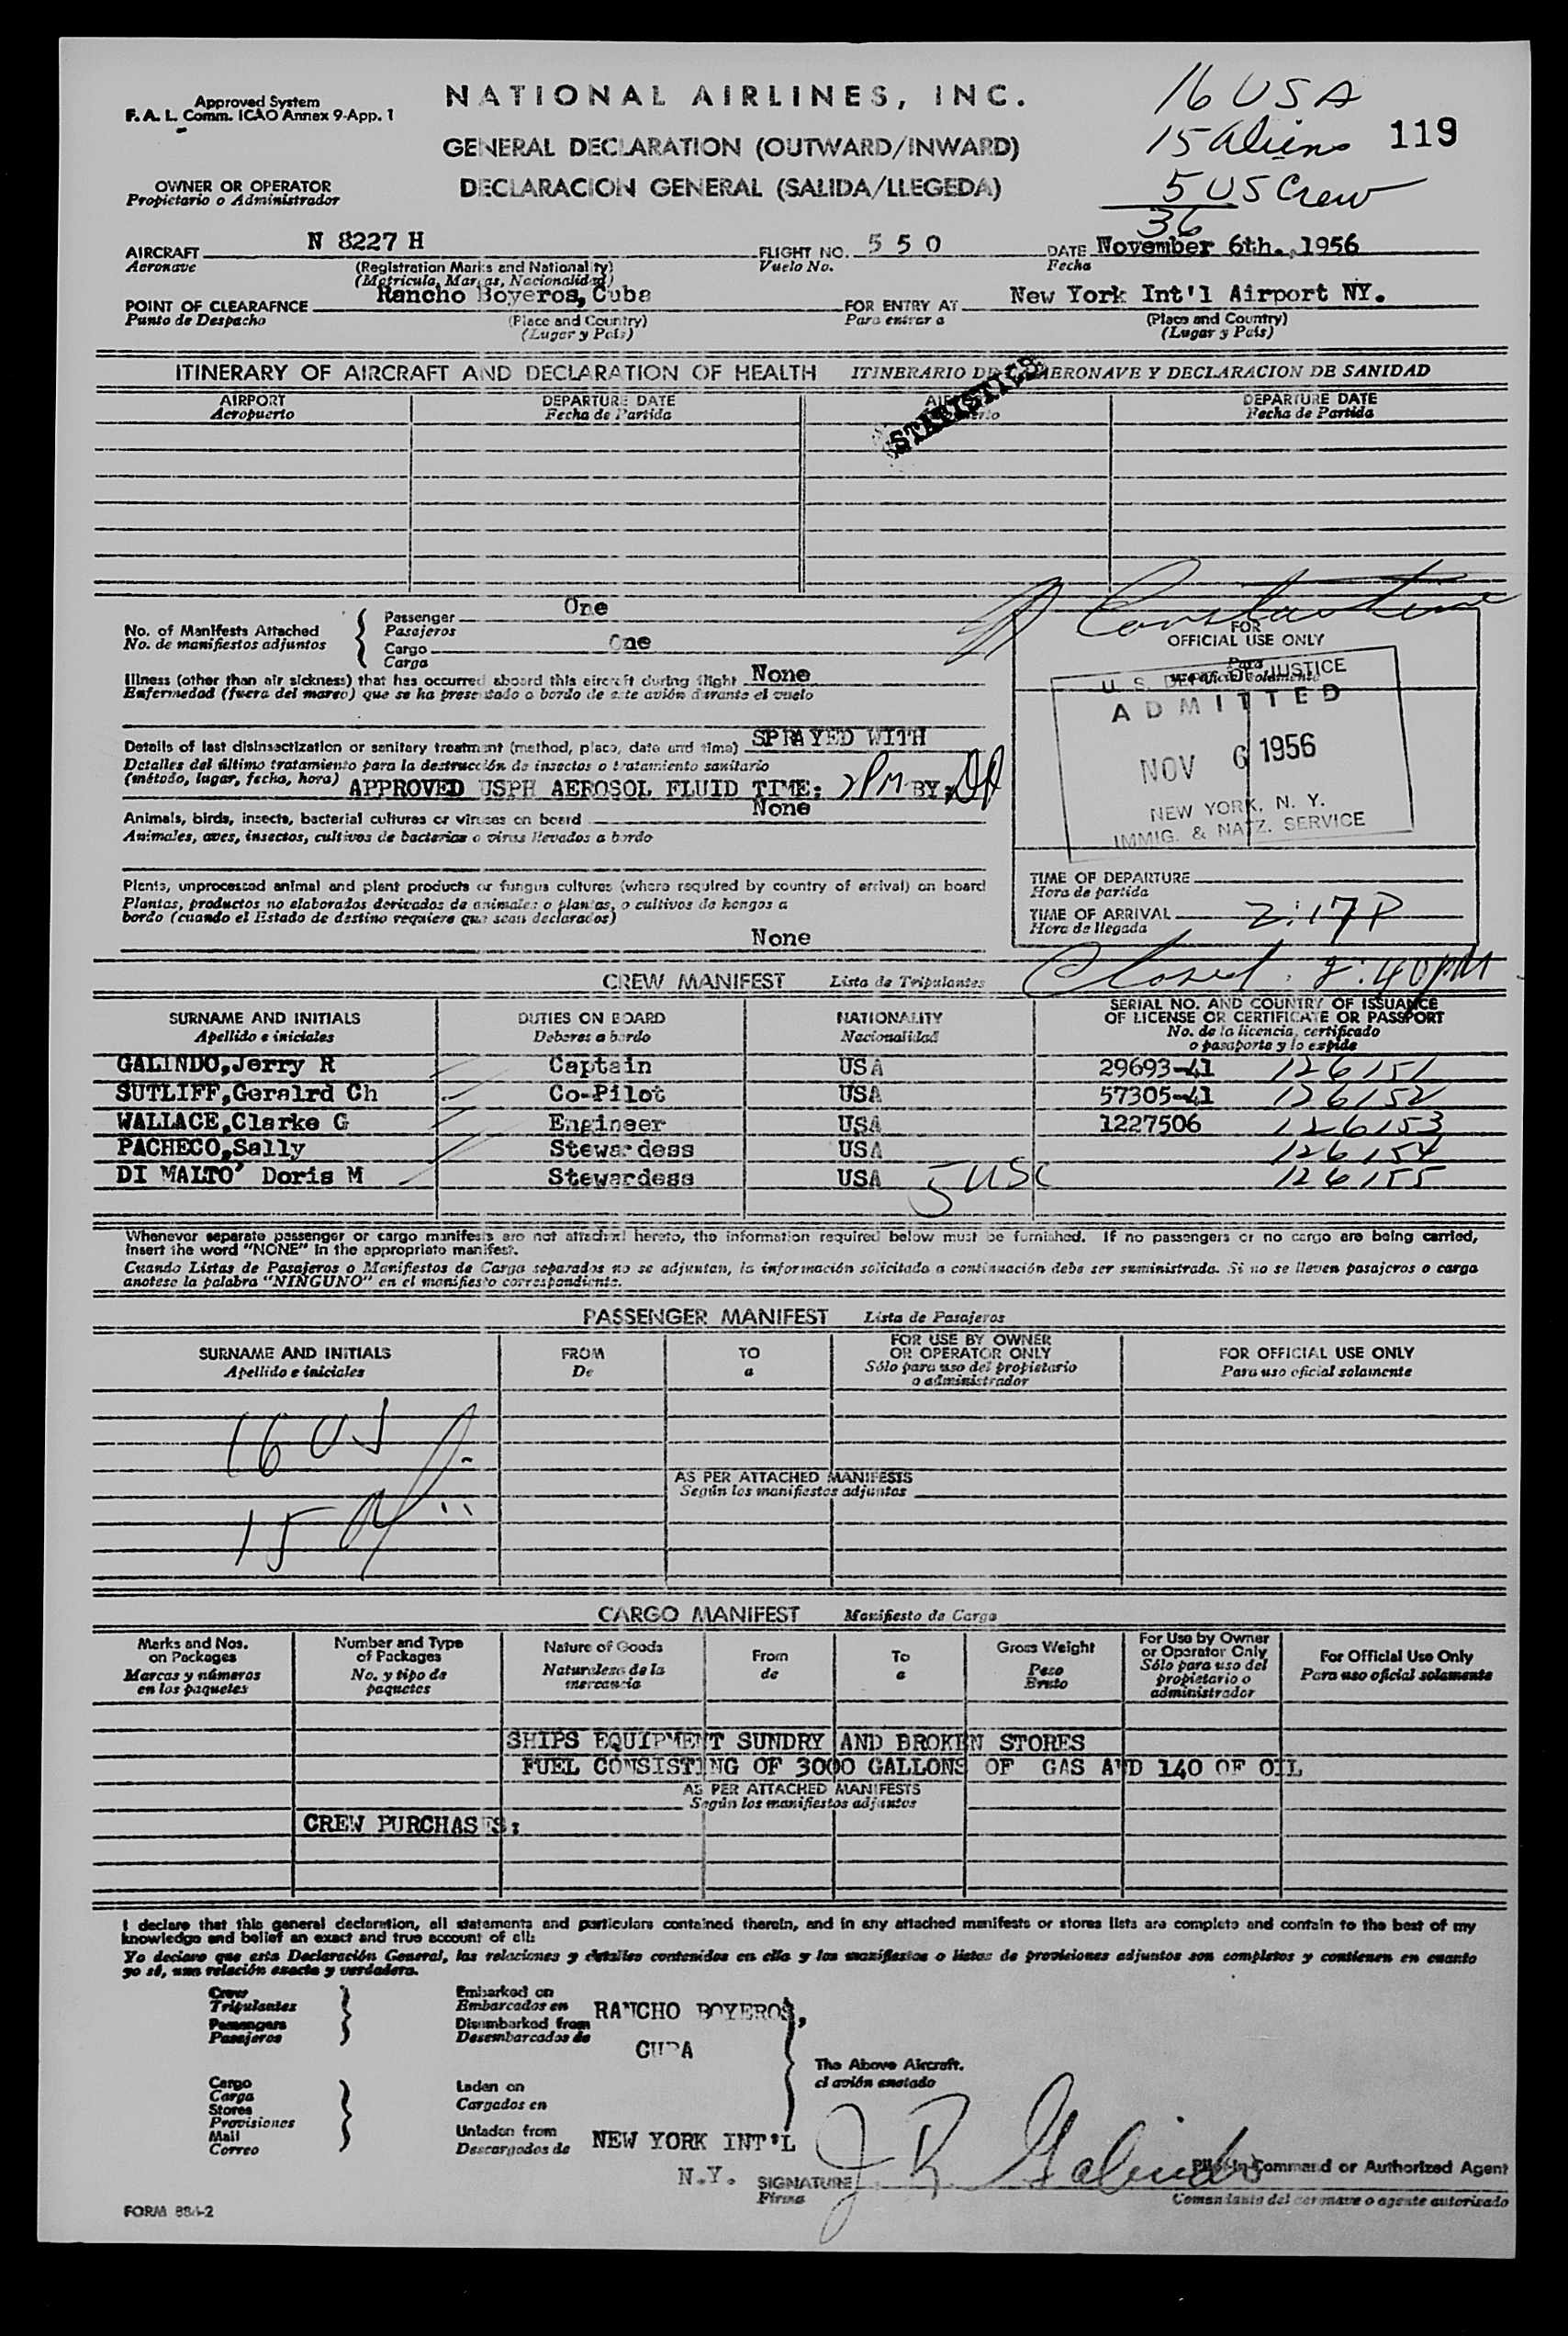 Approved System
F. A. L. Comm. ICAO Annex 9-App. 1
NATIONAL AIRLINES, INC.
16 USA
15 Aliens 119
GENERAL DECLARATION (OUTWARD/INWARD)
5 US Crew
36
OWNER OR OPERATOR
Propietario o Administrador
DECLARACION GENERAL (SALIDA/LLEGEDA)
AIRCRAFT N 8227 H FLIGHT NO. 550 DATE November 6th., 1956
Aeronave (Registration Marks and Nationality) Vuelo No. Fecha
(Matricula, Marcas, Nacionalidad)
POINT OF CLEARAFNCE Rancho Boyeros, Cuba FOR ENTRY AT New York Int'l Airport NY.
Punto de Despacho (Place and Country) Para entrar a (Place and Country)
(Lugar y Pais) (Lugar y Pais)
ITINERARY OF AIRCRAFT AND DECLARATION OF HEALTH ITINERARIO DE AERONAVE Y DECLARACION DE SANIDAD
STATISTICS
AIRPORT DEPARTURE DATE AIRPORT DEPARTURE DATE
Aeropuerto Fecha de Partida Aeropuerto Fecha de Partida
No. of Manifests Attached
No. de manifiestos adjuntos
Passenger One
Pasajeros
Cargo One
Carga
Constantine
FOR
OFFICIAL USE ONLY
Para
uso oficial solamente
U. S. DEPT. OF JUSTICE
ADMITTED
NOV 6 1956
NEW YORK, N. Y.
IMMIG. & NATZ. SERVICE
Illness (other than air sickness) that has occurred aboard this aircraft during flight None
Enfermedad (fuera del mareo) que se ha presentado a bordo de este avión durante el vuelo
Details of last disinsectization or sanitary treatment (method, place, date and time) SPRAYED WITH
Detalles del último tratamiento para la destrucción de insectos o tratamiento sanitario
(método, lugar, fecha, hora) APPROVED USPH AEROSOL FLUID TIME: 2PM BY:
Animals, birds, insects, bacterial cultures or viruses on board None
Animales, aves, insectos, cultivos de bacterias o virus llevados a bordo
Plents, unprocessed animal and plant products or fungus cultures (where required by country of arrival) on board
Plantas, productos no elaborados derivados de animales o plantas, o cultivos de hongos a
bordo (cuando el Estado de destino requiere que sean declarados)
None
TIME OF DEPARTURE
Hora de partida
TIME OF ARRIVAL 2:17P
Hora de llegada
Closed 2:40 PM
CREW MANIFEST Lista de Tripulantes
SURNAME AND INITIALS DUTIES ON BOARD NATIONALITY SERIAL NO. AND COUNTRY OF ISSUANCE
OF LICENSE OR CERTIFICATE OR PASSPORT
Apellido e iniciales Deberes a bordo Nacionalidad No. de la licencia, certificado
o pasaporte y lo expide
GALINDO,Jerry R Captain USA 29693-41 126151
SUTLIFF,Geralrd Ch Co-Pilot USA 57305-41 126152
WALLACE,Clarke G Engineer USA 1227506 126153
PACHECO,Sally Stewardess USA 126154
DI MALTO' Doris M Stewardess USA 5 USC 126155
Whenever separate passenger or cargo manifests are not attached hereto, the information required below must be furnished. If no passengers or no cargo are being carried,
insert the word "NONE" in the appropriate manifest.
Cuando Listas de Pasajeros o Manifiestos de Carga separados no se adjuntan, la información solicitada a continuación debe ser suministrada. Si no se lleven pasajeros o carga
anotese la palabra "NINGUNO" en el manifiesto correspondiente.
PASSENGER MANIFEST Lista de Pasajeros
SURNAME AND INITIALS FROM TO FOR USE BY OWNER
OR OPERATOR ONLY FOR OFFICIAL USE ONLY
Apellido e iniciales De a Sólo para uso del propietario
o administrador Para uso oficial solamente
16 US
AS PER ATTACHED MANIFESTS
Según los manifiestos adjuntos
15 A
CARGO MANIFEST Manifiesto de Carga
Marks and Nos.
on Packages
Marcas y números
en los paquetes
Number and Type
of Packages
No. y tipo de
paquetes
Nature of Goods
Naturaleza de la
mercancia
From
de
To
a
Gross Weight
Peso
Bruto
For Use by Owner
or Operator Only
Sólo para uso del
propietario o
administrador
For Official Use Only
Para uso oficial solamente
SHIPS EQUIPMENT SUNDRY AND BROKEN STORES
FUEL CONSISTING OF 3000 GALLONS OF GAS AND 140 OF OIL
AS PER ATTACHED MANIFESTS
Según los manifiestos adjuntos
CREW PURCHASES:
I declare that this general declaration, all statements and particulars contained therein, and in any attached manifests or stores lists are complete and contain to the best of my
knowledge and belief an exact and true account of all:
Yo declaro que esta Declaración General, las relaciones y detalles contenidos en ella y los manifiestos o listas de provisiones adjuntos son completos y contienen en cuanto
yo sé, una relación exacta y verdadera.
Crew
Tripulantes
Passengers
Pasajeros
Embarked on
Embarcados en RANCHO BOYEROS,
Disembarked from
Desembarcados de
CUBA
The Above Aircraft.
el avión anotado
Cargo
Carga
Stores
Provisiones
Mail
Correo
Laden on
Cargados en
Unladen from
Descargados de NEW YORK INT'L
N.Y.
SIGNATURE J R Galindo
Firma
Pilot-in-Command or Authorized Agent
Comandante del aeronave o agente autorizado
FORM 884-2